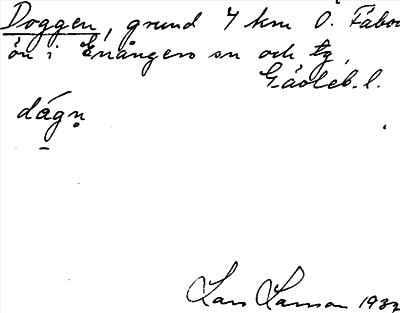 Doggen, grund 4 km Ö. Fåbod
ön i Enångers sn och tg,
Gävleb. l.
dågn̥
Lars Larsson 1932